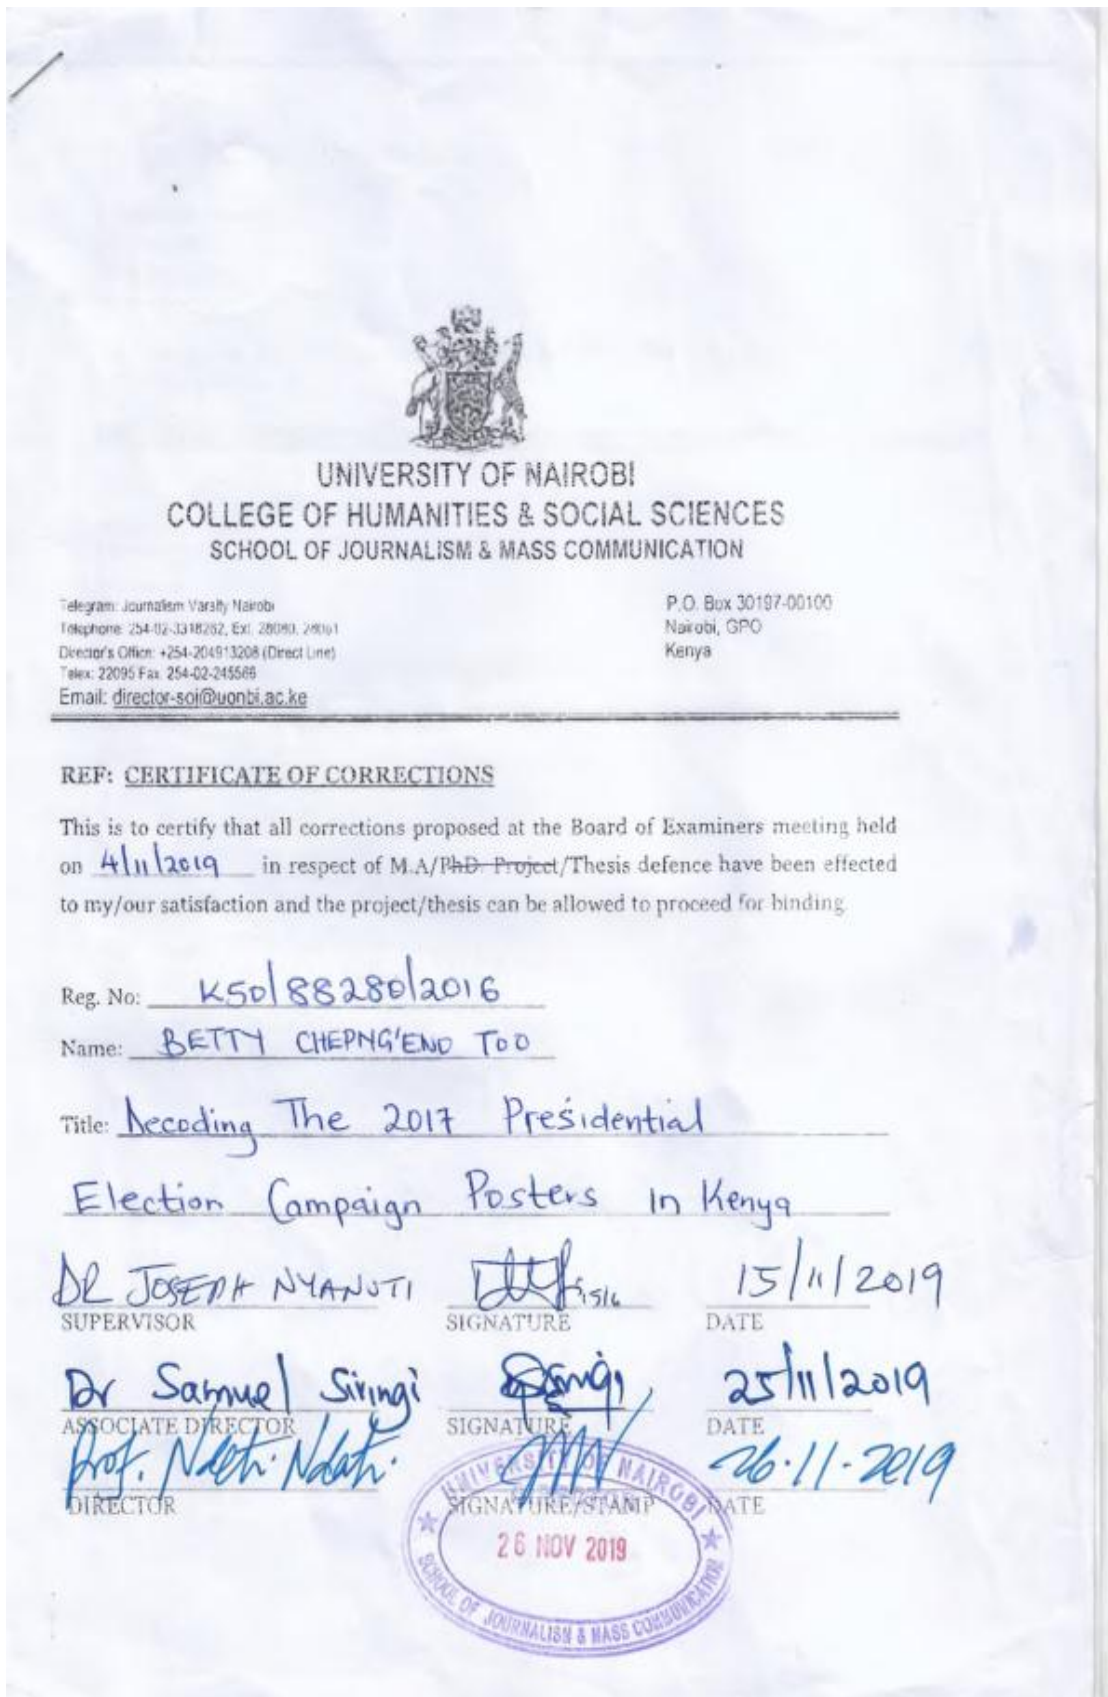 UNIVERSITY OF NAIROBI
COLLEGE OF HUMANITIES & SOCIAL SCIENCES
SCHOOL OF JOURNALISM & MASS COMMUNICATION
Telegram: Journalism Varsity Nairobi
P.O. Box 30197-00100
Telephone: 254-02-3318262, Ext. 28080, 28061
Nairobi, GPO
Director's Office: +254-204913208 (Direct Line)
Kenya
Telex: 22095 Fax: 254-02-245566
Email: director-soj@uonbi.ac.ke
REF: CERTIFICATE OF CORRECTIONS
This is to certify that all corrections proposed at the Board of Examiners meeting held
on 4/11/2019 in respect of M.A/PhD. Project/Thesis defence have been effected
to my/our satisfaction and the project/thesis can be allowed to proceed for binding.
Reg. No: K50/88280/2016
Name: BETTY CHEPNG'ENO TOO
Title: Decoding The 2017 Presidential
Election Campaign Posters in Kenya
DR JOSEPH NYANOTI 15/11/2019
SUPERVISOR SIGNATURE DATE
Dr Samuel Siringi 25/11/2019
ASSOCIATE DIRECTOR SIGNATURE DATE
Prof. Ndeti Ndati 26.11.2019
DIRECTOR SIGNATURE/STAMP DATE
UNIVERSITY OF NAIROBI
26 NOV 2019
SCHOOL OF JOURNALISM & MASS COMMUNICATION